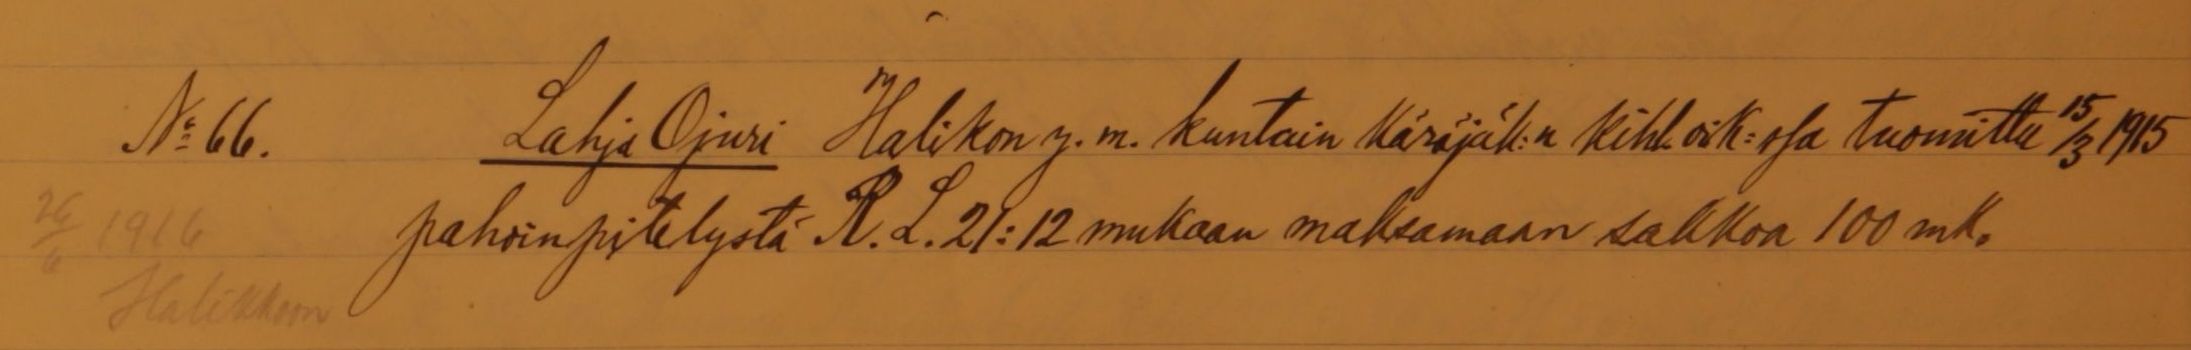 No 66. Lahja Ojuri Halikon y. m. kuntain käräjäk:n kihl. oik:ssa tuomittu 15/3 1915
pahoinpitelystä R. L. 21:12 mukaan maksamaan sakkoa 100 mk.
26/6 1916
Halikkoon